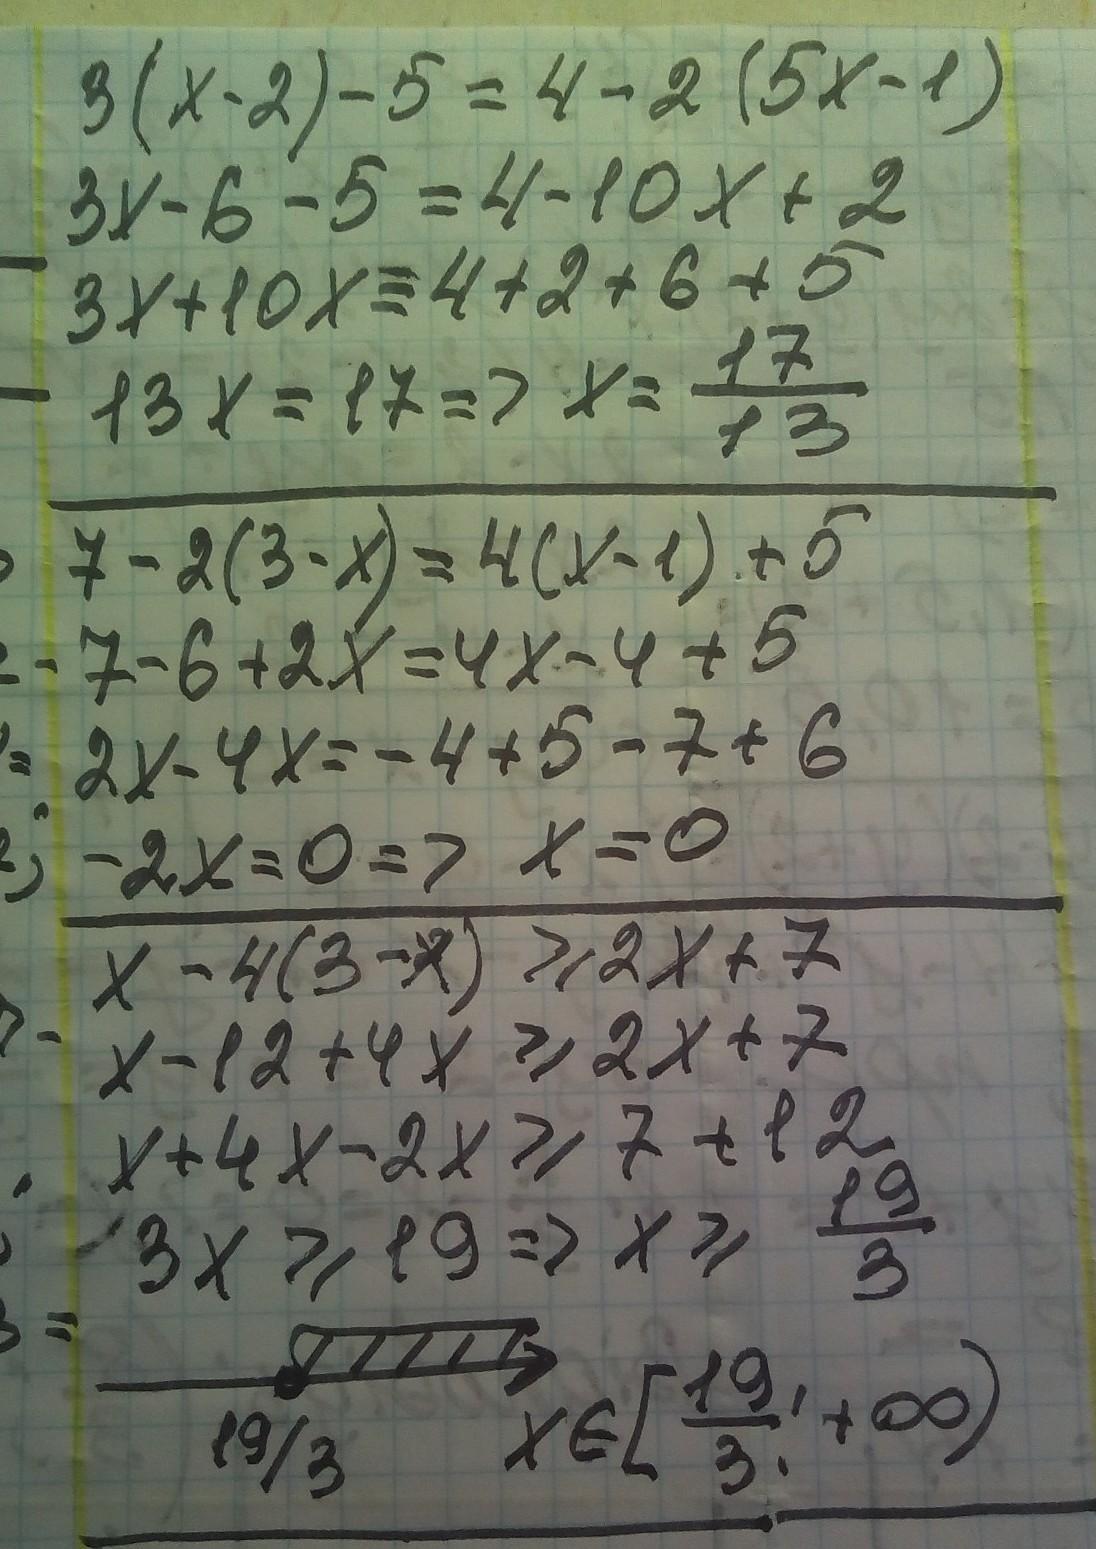 3(x-2)-5=4-2(5x-1)
3x-6-5=4-10x+2
3x+10x=4+2+6+5
13x=17=> x=17/13
7-2(3-x)=4(x-1)+5
7-6+2x=4x-4+5
2x-4x=-4+5-7+6
-2x=0=> x=0
x-4(3-x)⩾2x+7
x-12+4x⩾2x+7
x+4x-2x⩾7+12
3x⩾19=> x⩾19/3
19/3
x∈[19/3;+∞)